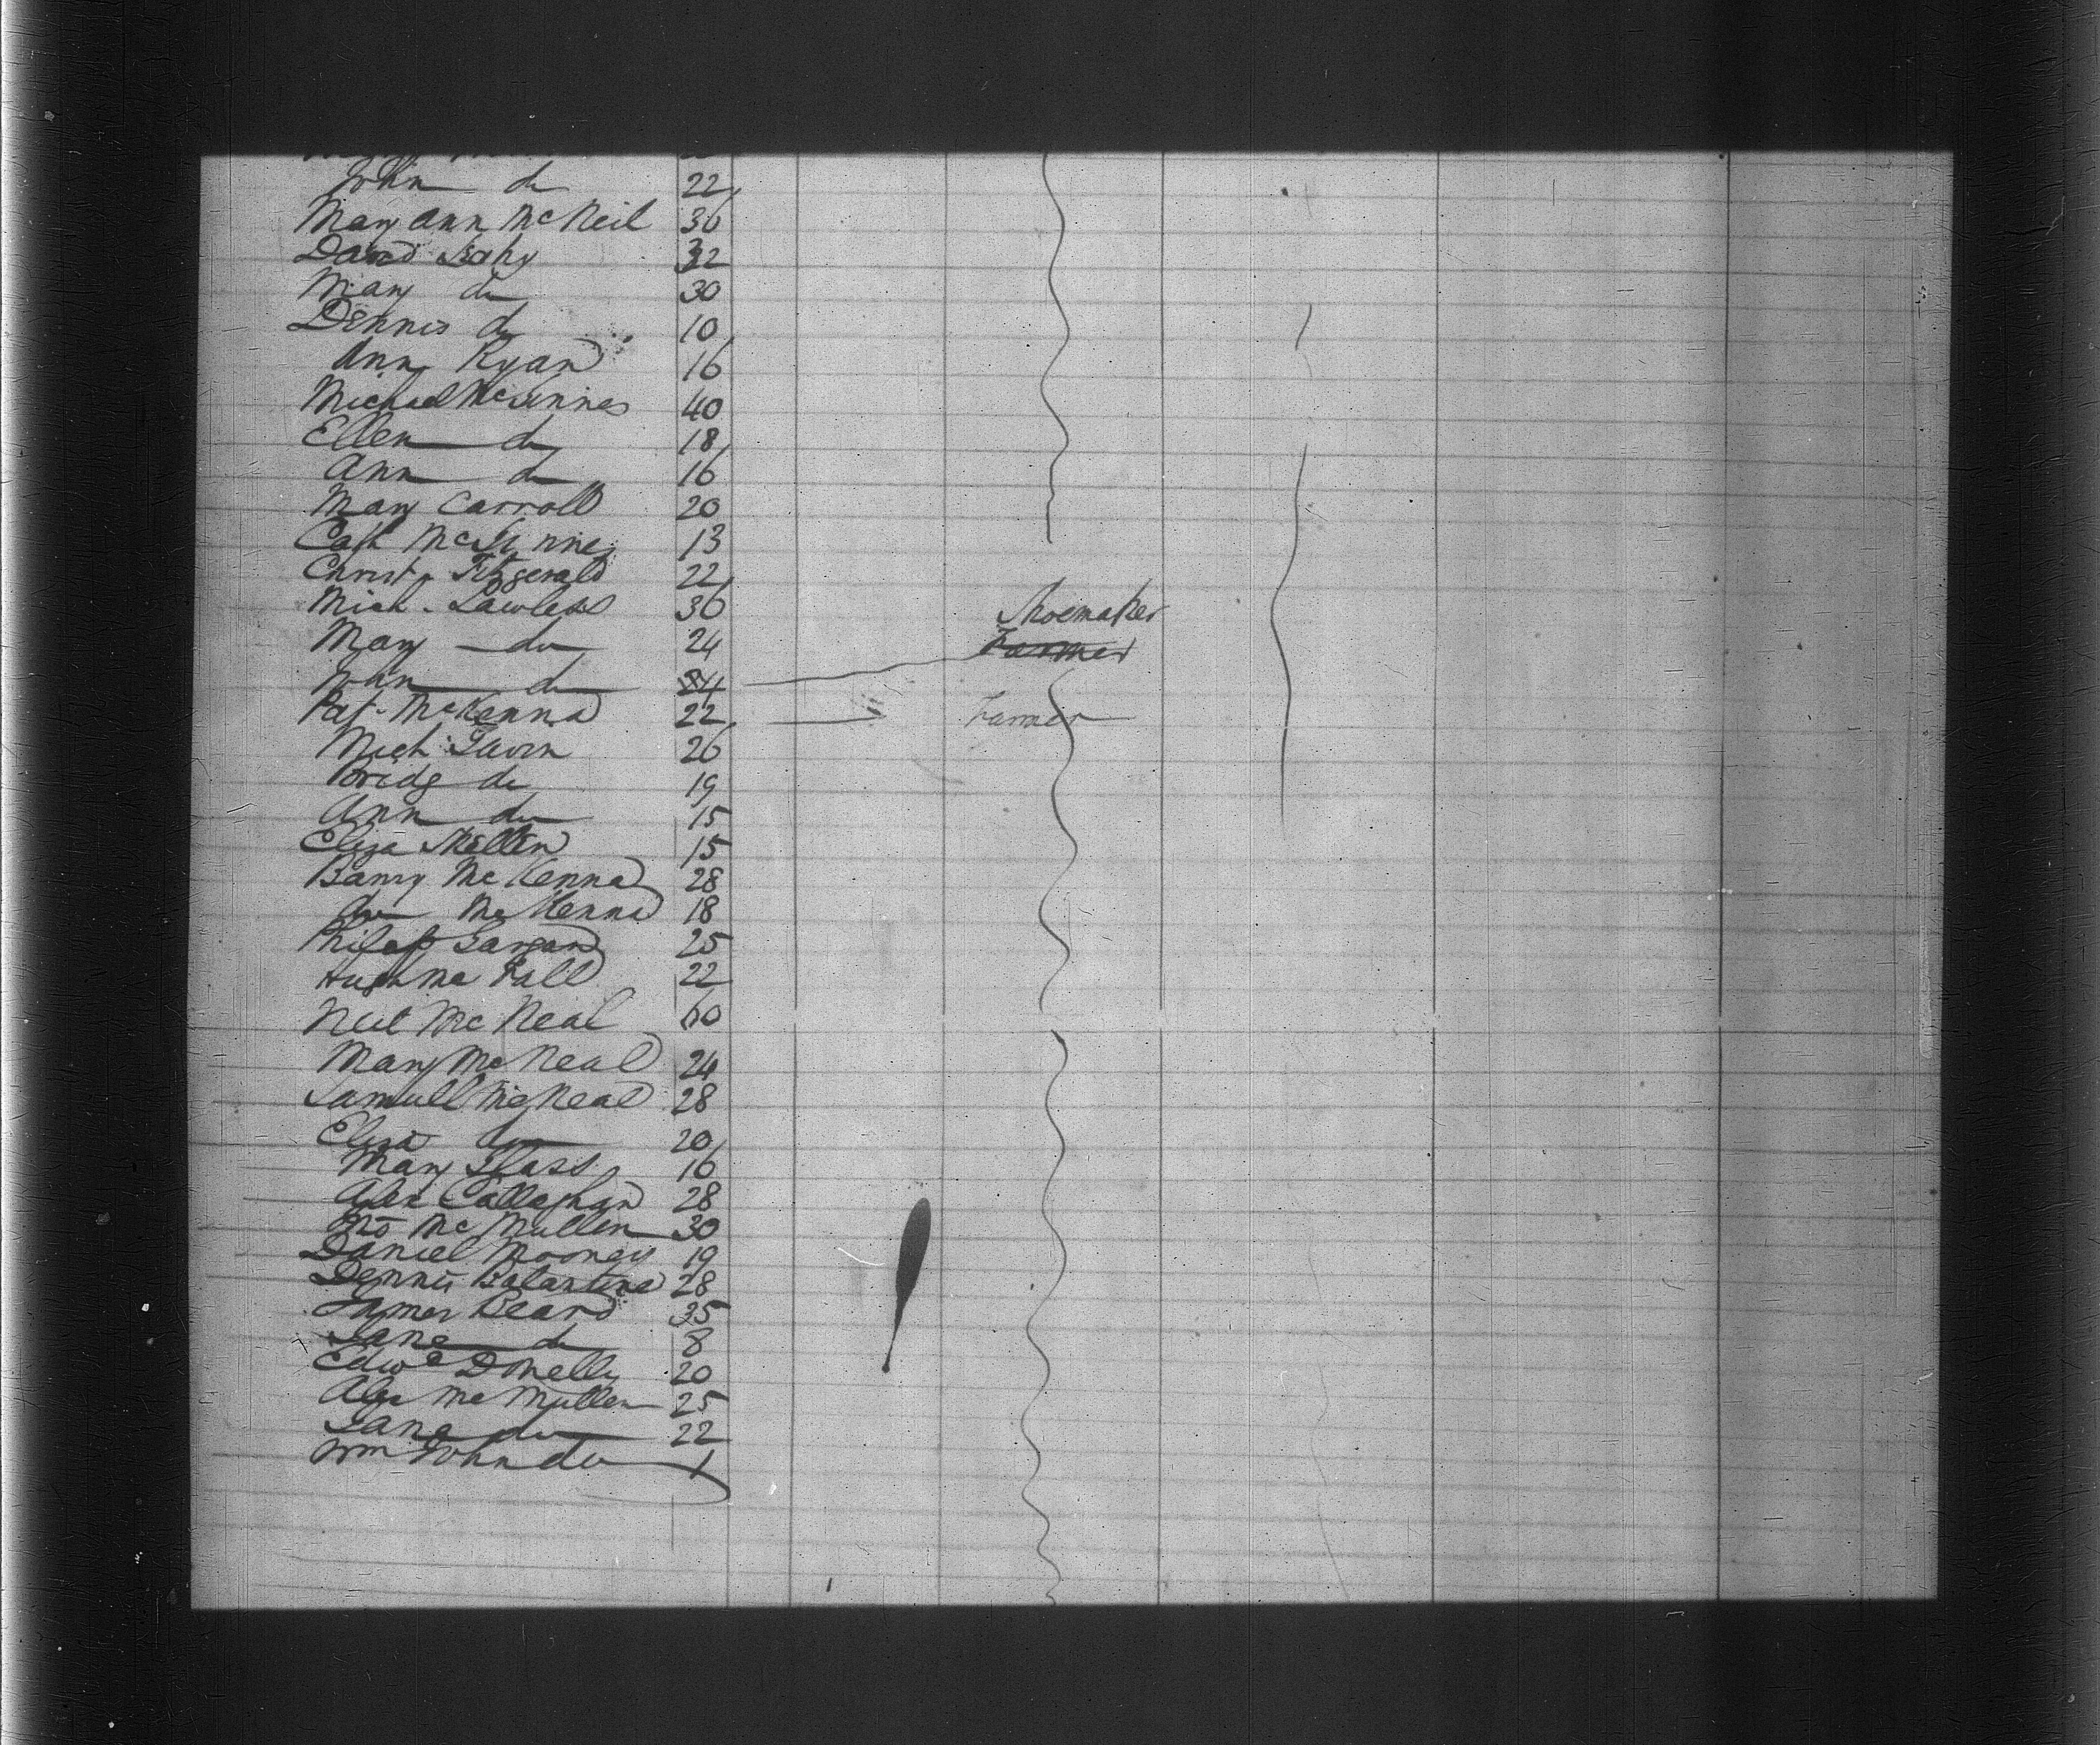 John do 22
Mary Ann McNeil 36
David Leahy 32
Mary do 30
Dennis do 10
Ann Ryan 16
Michael McGinnes 40
Ellen do 18
Ann do 16
Mary Carroll 20
Cath McGinnes 13
Christr Fitzgerald 22
Mich. Lawless 36 Shoemaker
Mary do 24 Farmer
John do 24
Pat. McKenna 22 Farmer
Mich 26
Bridg do 19
Ann do 15
Eliza 15
Barny McKenna 28
McKenna 18
Philip 25
Hugh Mc Fall 22
Neil McNeal 60
Mary McNeal 24
Samuell McNeal 28
Eliza do 20
Mary Glass 16
Alex Callaghan 28
McMullen 30
Daniel Mooney 19
Dennis Balantine 28
James Beard 35
Jane do 8
Edwd Donelly 20
Alex McMullen 25
Jane do 22
Wm John do 1